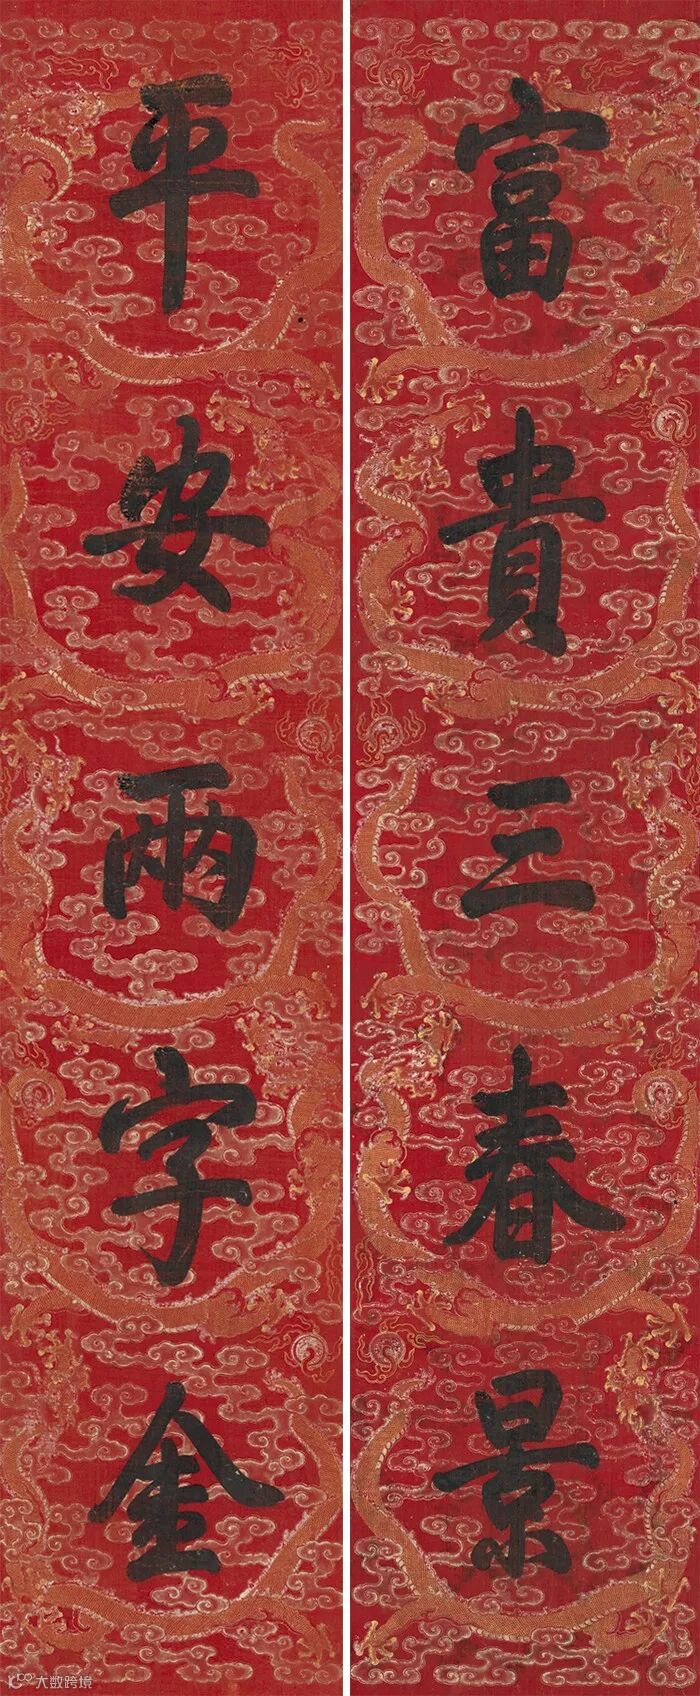 富貴三春景
平安兩字金
大数跨境